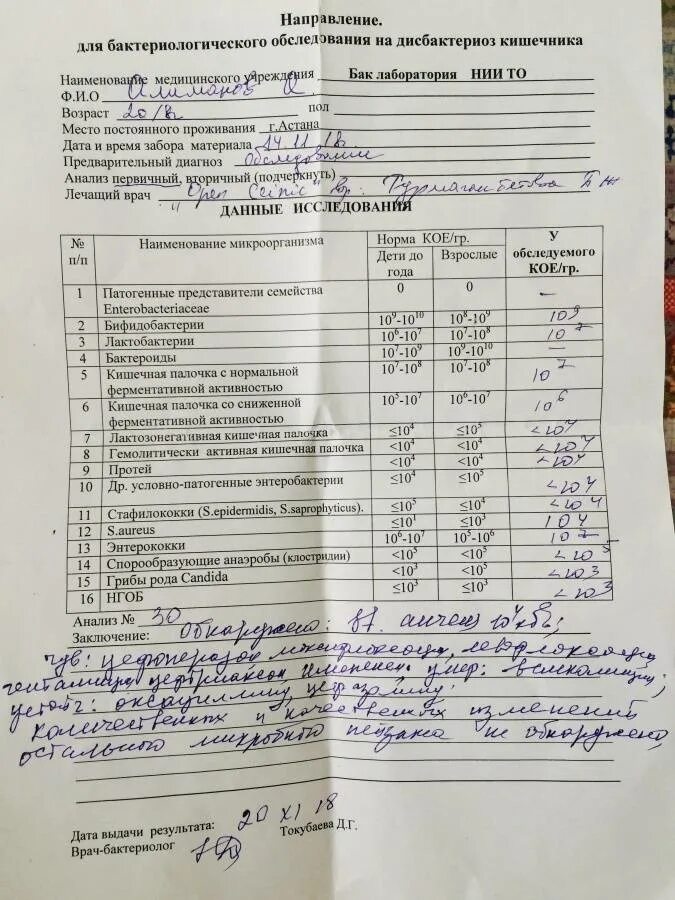 Направление.
для бактериологического обследования на дисбактериоз кишечника
Наименование медицинского учреждения Бак лаборатория НИИ ТО
Ф.И.О Алиманов
Возраст 20 пол
Место постоянного проживания г.Астана
Дата и время забора материала 14.11.18г
Предварительный диагноз Обследование
Анализ первичный, вторичный (подчеркнуть)
Лечащий врач "Open Clinic" Вр:
ДАННЫЕ ИССЛЕДОВАНИЯ
№ п/п Наименование микроорганизма Норма КОЕ/гр. У обследуемого КОЕ/гр.
Дети до года Взрослые
1 Патогенные представители семейства Enterobacteriaceae 0 0 —
2 Бифидобактерии 10⁹-10¹⁰ 10⁸-10⁹ 10⁹
3 Лактобактерии 10⁶-10⁷ 10⁷-10⁸ 10⁷
4 Бактероиды 10⁷-10⁹ 10⁹-10¹⁰ —
5 Кишечная палочка с нормальной ферментативной активностью 10⁷-10⁸ 10⁷-10⁸ 10⁷
6 Кишечная палочка со сниженной ферментативной активностью 10⁵-10⁷ 10⁶-10⁷ 10⁶
7 Лактозонегативная кишечная палочка ≤10⁴ ≤10⁵ <10⁴
8 Гемолитически активная кишечная палочка <10⁴ <10⁴ <10⁴
9 Протей <10⁴ <10⁴ <10⁴
10 Др. условно-патогенные энтеробактерии ≤10⁴ ≤10⁵ <10⁴
11 Стафилококки (S.epidermidis, S.saprophyticus). ≤10⁵ ≤10⁴ <10⁴
12 S.aureus ≤10¹ ≤10³ 10⁴
13 Энтерококки 10⁶-10⁷ 10⁵-10⁶ 10⁷
14 Спорообразующие анаэробы (клостридии) <10⁵ <10⁵ <10⁵
15 Грибы рода Candida <10³ <10⁵ <10³
16 НГОБ ≤10³ ≤10³ <10³
Анализ № 30
Заключение: Обнаружено:
Чув: цефоперазон
гентамицин цефтриаксон имипенем умер:
устойч: оксациллину
количественных и качественных изменений
остального микробного пейзажа не обнаружено
Дата выдачи результата: 20 XI 18
Врач-бактериолог Токубаева Д.Г.